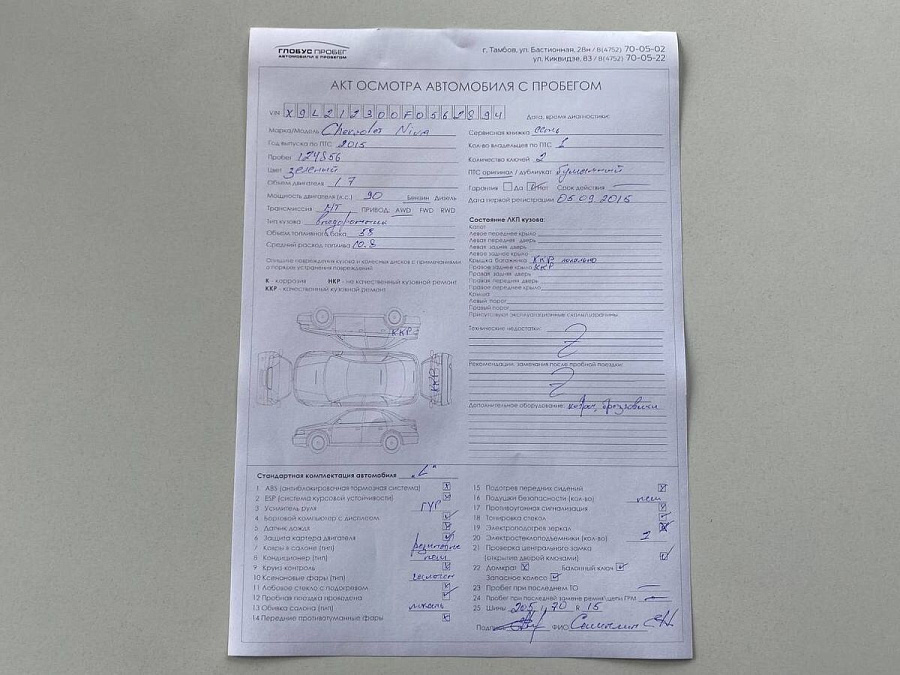 ГЛОБУС ПРОБЕГ
АВТОМОБИЛИ С ПРОБЕГОМ
г. Тамбов, ул. Бастионная, 28н / 8(4752) 70-05-02
ул. Киквидзе, 83 / 8(4752) 70-05-22
АКТ ОСМОТРА АВТОМОБИЛЯ С ПРОБЕГОМ
VIN X9L212300F0562894
Марка/Модель Chevrolet Niva
Год выпуска по ПТС 2015
Пробег 124856
Цвет зеленый
Объем двигателя 1.7
Мощность двигателя (л.с.) 90 Бензин Дизель
Трансмиссия МТ ПРИВОД: AWD FWD RWD
Тип кузова внедорожник
Объем топливного бака 58
Средний расход топлива 10.8
Опишите повреждения кузова и колесных дисков с примечаниями
о порядке устранения повреждений
К - коррозия НКР - не качественный кузовной ремонт
ККР - качественный кузовной ремонт
ККР
ККР
Дата, время диагностики:
Сервисная книжка есть
Кол-во владельцев по ПТС 1
Количество ключей 2
ПТС оригинал / дубликат бумажный
Гарантия Да Нет Срок действия
Дата первой регистрации 05.09.2015
Состояние ЛКП кузова:
Капот
Левое переднее крыло
Левая передняя дверь
Левая задняя дверь
Левое заднее крыло
Крышка багажника ККР локально
Правое заднее крыло ККР
Правая задняя дверь
Правая передняя дверь
Правое переднее крыло
Крыша
Левый порог
Правый порог
Присутствуют эксплуатационные сколы/царапины
Технические недостатки: Z
Рекомендации, замечания после пробной поездки: Z
Дополнительное оборудование: ковры, брызговики
Стандартная комплектация автомобиля "L"
1 ABS (антиблокировочная тормозная система)
2 ESP (система курсовой устойчивости)
3 Усилитель руля ГУР
4 Бортовой компьютер с дисплеем
5 Датчик дождя
6 Защита картера двигателя
7 Ковры в салоне (тип) резиновые
8 Кондиционер (тип)
9 Круиз-контроль
10 Ксеноновые фары (тип)
11 Лобовое стекло с подогревом
12 Пробная поездка проведена
13 Обивка салона (тип)
14 Передние противотуманные фары
15 Подогрев передних сидений
16 Подушки безопасности (кол-во) нет
17 Противоугонная сигнализация
18 Тонировка стекол
19 Электроподогрев зеркал
20 Электростеклоподъемники (кол-во) 2
21 Проверка центрального замка
(открытие дверей клюзами)
22 Домкрат Балонный ключ
Запасное колесо
23 Пробег при последнем ТО
24 Пробег при последней замене ремня/цепи ГРМ
25 Шины 205 / 70 R 15
Подпись ФИО